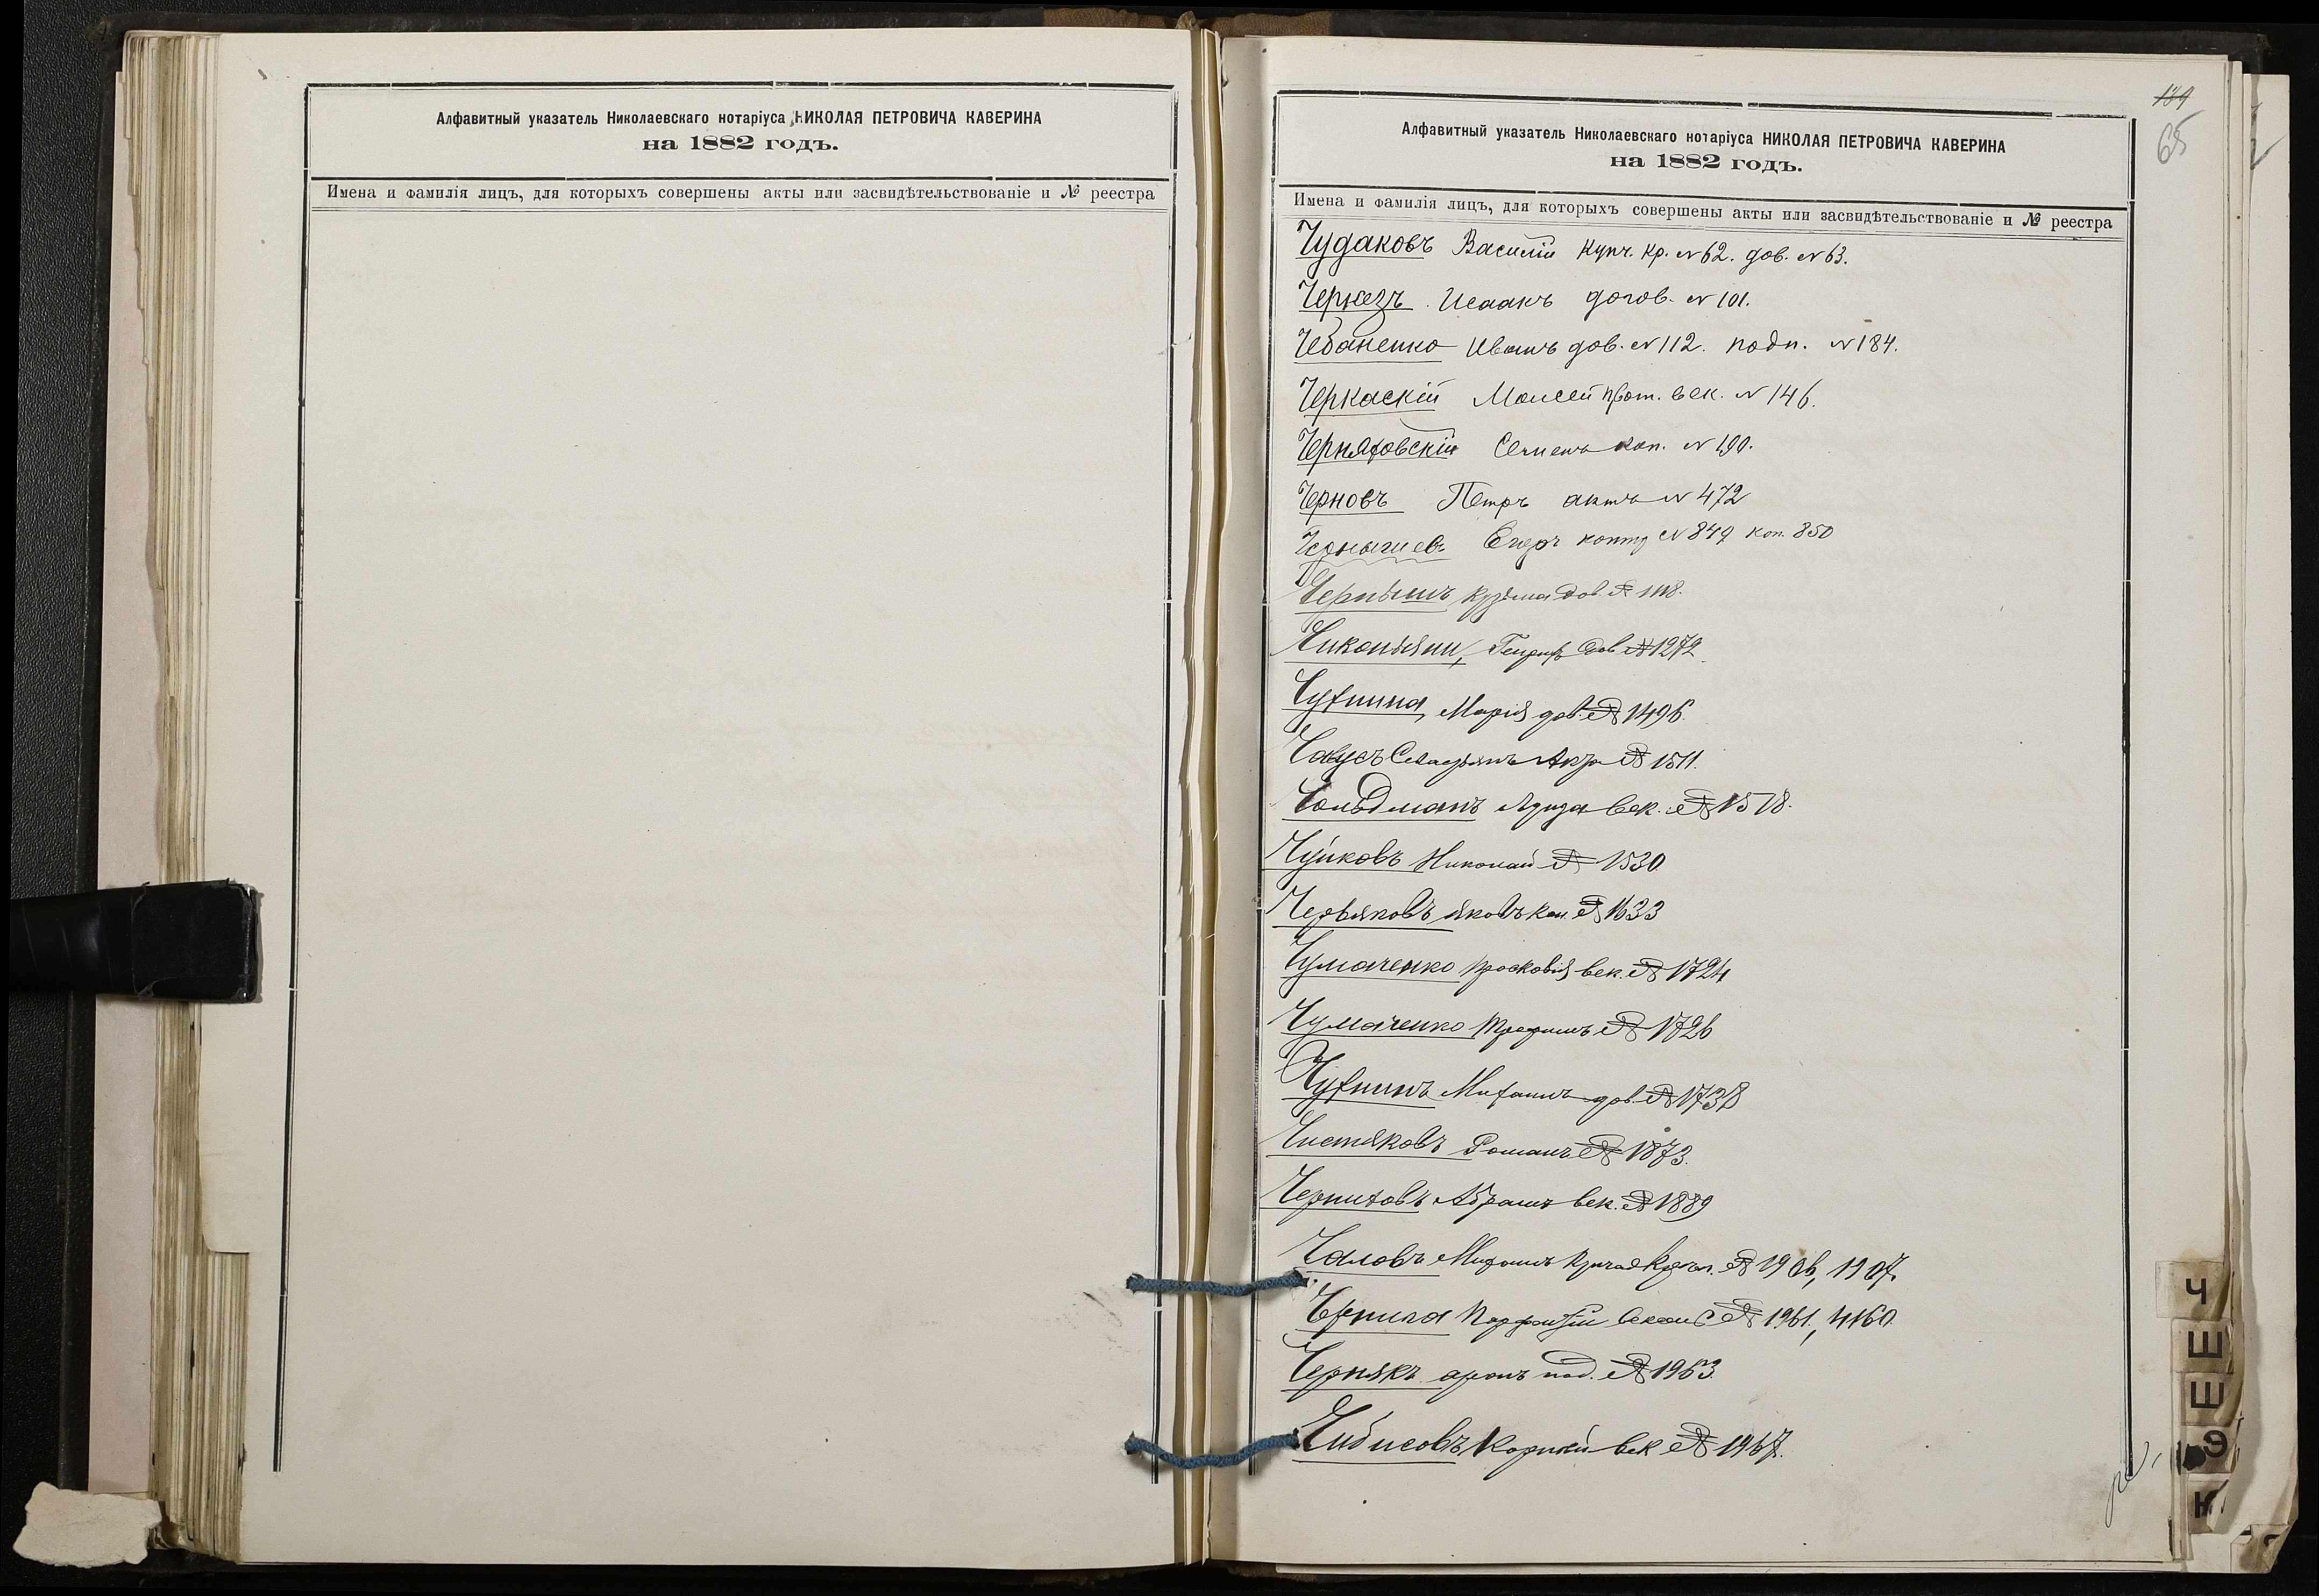 Алфавитный указатель Николаевскаго нотаріуса НИКОЛАЯ ПЕТРОВИЧА КАВЕРИНА
на 1882 годъ.
Имена и фамилія лицъ, для которыхъ совершены акты или засвидѣтельствованіе и № реестра
189
65
Алфавитный указатель Николаевскаго нотаріуса НИКОЛАЯ ПЕТРОВИЧА КАВЕРИНА
на 1882 годъ.
Имена и фамилія лицъ, для которыхъ совершены акты или засвидѣтельствованіе и № реестра
Чудаковъ Василій купч. кр. № 62. дов. № 63.
Черкезъ Исаакъ догов. № 101.
Чебаненко Иванъ дов. № 112. подп. № 184.
Черкаскій Моисей прот. век. № 146.
Черняховскій Семенъ коп. № 190.
Черновъ Петръ актъ № 472
Егоръ контр № 849 коп. 850
Чернышъ Кузьма дов. № 1118.
дов № 1272
Чухнина, Марія дов. № 1496.
Чаусъ № 1511.
Чольдманъ век. № 1518.
Чуйковъ Николай № 1530
Червяковъ Яковъ коп. № 1633
Чумаченко Просковія век. № 1724
Чумаченко Трофимъ № 1726
Чухнинъ Михаилъ дов. № 1738
Чистяковъ Романъ № 1873.
Черниховъ Абрамъ век. № 1889
Чаловъ Михаилъ № 1906, 1907.
Чернила Порфирій № 1961, 4160.
Чернякъ аронъ под. № 1963.
Чибисовъ Корнѣй век № 1967.
Ч
Ш
Ш
Э
Ю